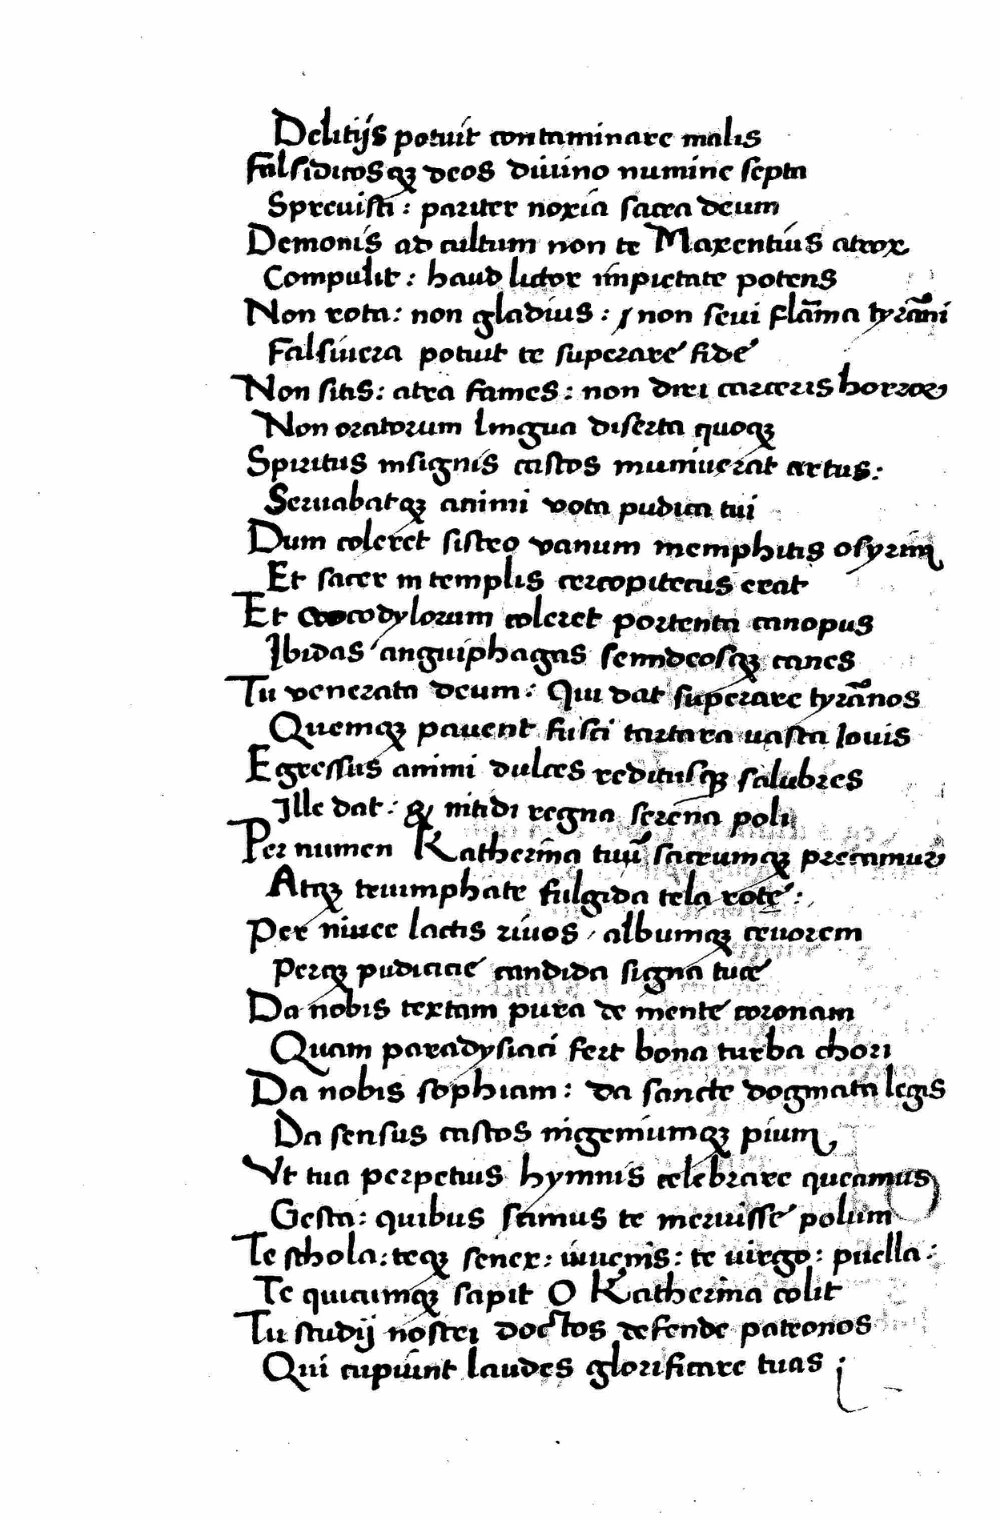 Delitijs potuit contaminare malis
Falsidicosqꝫ deos diuino numine septa
Spreuisti : pariter noxia sacra deum
Demonis ad cultum non te Maxentius atrox
Compulit : haud lictor impietate potens
Non rota : non gladius : / non seui flāma tyrāni
Falsiuera potuit te superare fide
Non sitis : atra fames : non diri carceris horror
Non oratorum lingua diserta quoqꝫ
Spiritus insignis castos muniuerat artus :
Seruabatqꝫ animi vota pudica tui
Dum coleret sistro vanum memphitis osyrim
Et sacer in templis cercopitecus erat
Et crocodylorum coleret portenta canopus
Ibidas anguiphagas semideosqꝫ canes
Tu venerata deum : Qui dat superare tyrānos
Quemqꝫ pauent fusci tartara uasta Iouis
Egressus animi dulces reditusqꝫ salubres
Ille dat : & nitidi regna serena poli
Per numen Katherina tuū sacrumqꝫ precamur
Atqꝫ triumphate fulgida tela rotę :
Per niuee lactis riuos / albumqꝫ cruorem
Perqꝫ pudicicie candida signa tue
Da nobis textam pura de mente coronam
Quam paradysiaci fert bona turba chori
Da nobis sophiam : da sancte dogmata legis
Da sensus castos ingeniumqꝫ pium
Vt tua perpetuis hymnis celebrare queamus
Gesta : quibus scimus te meruisse polum
Te schola : teqꝫ senex : iuuenis : te uirgo : puella :
Te quicumqꝫ sapit O Katherina colit
Tu studij nostri doctos defende patronos
Qui cupiunt laudes glorificare tuas :